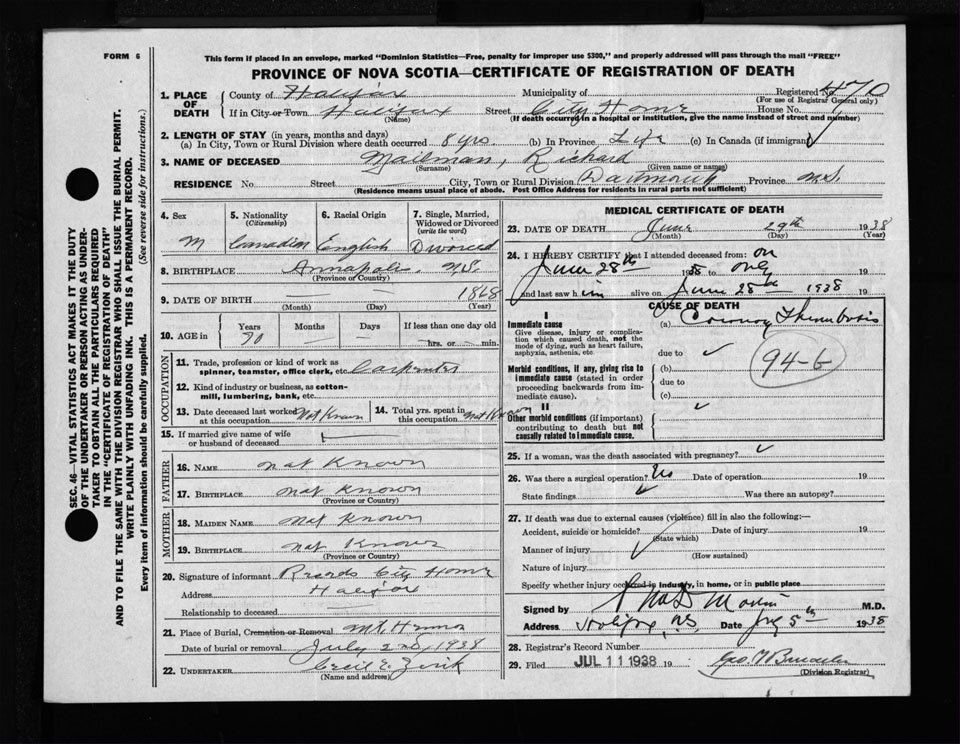 FORM 6
This form if placed in an envelope, marked "Dominion Statistics—Free, penalty for improper use $300," and properly addressed will pass through the mail "FREE"
PROVINCE OF NOVA SCOTIA—CERTIFICATE OF REGISTRATION OF DEATH
SEC. 46—VITAL STATISTICS ACT MAKES IT THE DUTY
OF THE UNDERTAKER OR PERSON ACTING AS UNDER-
TAKER TO OBTAIN ALL THE PARTICULARS REQUIRED
IN THE "CERTIFICATE OF REGISTRATION OF DEATH"
AND TO FILE THE SAME WITH THE DIVISION REGISTRAR WHO SHALL ISSUE THE BURIAL PERMIT.
WRITE PLAINLY WITH UNFADING INK. THIS IS A PERMANENT RECORD.
Every item of information should be carefully supplied. (See reverse side for instructions.)
1. PLACE OF DEATH County of Halifax Municipality of Registered No. 470
(For use of Registrar General only)
If in City or Town Halifax Street City Home House No.
(Name) (If death occurred in a hospital or institution, give the name instead of street and number)
2. LENGTH OF STAY (in years, months and days)
(a) In City, Town or Rural Division where death occurred 8 yrs. (b) In Province Life (c) In Canada (if immigrant)
3. NAME OF DECEASED Mailman, Richard
(Surname) (Given name or names)
RESIDENCE No. Street City, Town or Rural Division Dartmouth Province N.S.
(Residence means usual place of abode. Post Office Address for residents in rural parts not sufficient)
4. Sex M
5. Nationality (Citizenship) Canadian
6. Racial Origin English
7. Single, Married, Widowed or Divorced (write the word) Divorced
8. BIRTHPLACE Annapolis N.S.
(Province or Country)
9. DATE OF BIRTH — — 1868
(Month) (Day) (Year)
10. AGE in Years 70 Months — Days — If less than one day old
hrs. or min.
OCCUPATION
11. Trade, profession or kind of work as
spinner, teamster, office clerk, etc. Carpenter
12. Kind of industry or business, as cotton-
mill, lumbering, bank, etc.
13. Date deceased last worked at this occupation Not Known
14. Total yrs. spent in this occupation Not Known
15. If married give name of wife
or husband of deceased
FATHER
16. NAME Not Known
17. BIRTHPLACE Not Known
(Province or Country)
MOTHER
18. MAIDEN NAME Not Known
19. BIRTHPLACE Not Known
(Province or Country)
20. Signature of informant Records City Home
Address Halifax
Relationship to deceased —
21. Place of Burial, Cremation or Removal Mt. Hermon
Date of burial or removal July 2nd, 1938
22. UNDERTAKER Cecil E. Zink
(Name and address)
MEDICAL CERTIFICATE OF DEATH
23. DATE OF DEATH June 29th 1938
(Month) (Day) (Year)
24. I HEREBY CERTIFY that I attended deceased from: on
June 28th 1938 to only 19
and last saw him alive on June 28th 1938 19
CAUSE OF DEATH
I
Immediate cause
Give disease, injury or complica-
tion which caused death, not the
mode of dying, such as heart failure,
asphyxia, asthenia, etc.
(a) Coronary Thrombosis
due to
94-6
Morbid conditions, if any, giving rise to
immediate cause (stated in order
proceeding backwards from im-
mediate cause).
(b)
due to
(c)
II
Other morbid conditions (if important)
contributing to death but not
causally related to immediate cause.
25. If a woman, was the death associated with pregnancy?
26. Was there a surgical operation? No Date of operation 19
State findings Was there an autopsy?
27. If death was due to external causes (violence) fill in also the following:—
Accident, suicide or homicide? Date of injury 19
(State which)
Manner of injury
(How sustained)
Nature of injury
Specify whether injury occurred in industry, in home, or in public place
Signed by M.D.
Address Halifax, N.S. Date July 5th 1938
28. Registrar's Record Number
29. Filed JUL 11 1938 19
(Division Registrar)